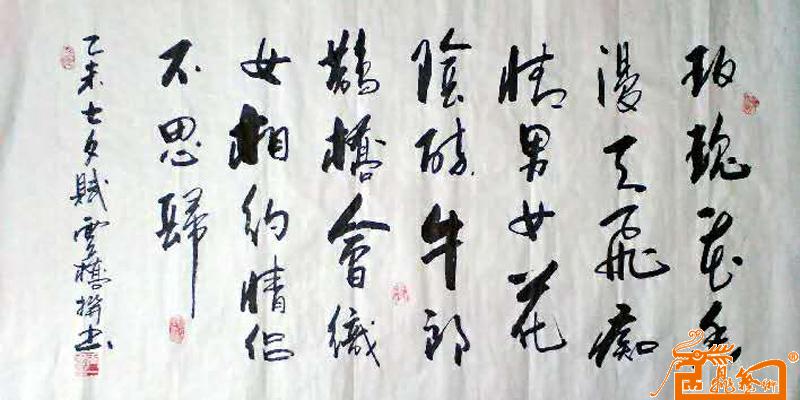 玫瑰花香
漫天飛痴
情男女花
陰醉牛郎
鵲橋會織
女相約情侶
不思歸
乙未七夕賦雲橋撰書